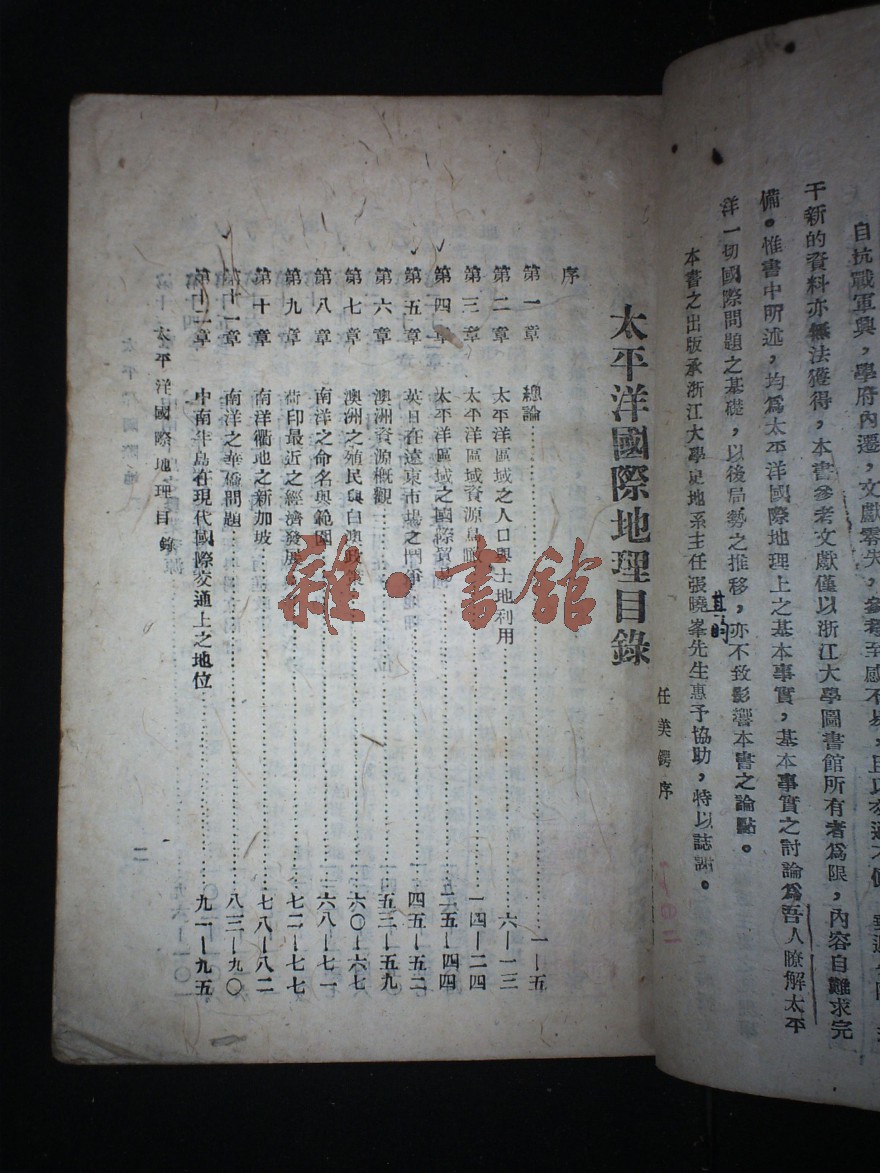 自抗戰軍興，學府內遷，文獻零失，參考至感不易，且以
干新的資料亦無法獲得，本書參考文獻僅以浙江大學圖書館所有者為限，內容自難求完
備。惟書中所述，均為太平洋國際地理上之基本事實，基本事實之討論為吾人瞭解太平
洋一切國際問題之基礎，以後局勢之推移，亦不致影響本書之論點。
其的
本書之出版承浙江大學史地系主任張曉峯先生惠予協助，特以誌謝。
任美鍔序
太平洋國際地理目錄
序
第一章 總論 一—五
第二章 太平洋區域之人口與土地利用 六—一三
第三章 太平洋區域資源鳥瞰 一四—二四
第四章 太平洋區域之國際貿 二五—四四
第五章 英日在遠東市場之鬥爭 四五—五二
第六章 澳洲資源概觀 五三—五九
第七章 澳洲之殖民與白澳政策 六〇—六七
第八章 南洋之命名與範圍 六八—七一
第九章 荷印最近之經濟發展 七二—七七
第十章 南洋衢地之新加坡 七八—八二
第十一章 南洋之華僑問題 八三—九〇
第十二章 中南半島在現代國際交通上之地位 九一—九五
太平洋國際地理目錄
一
雜·書館